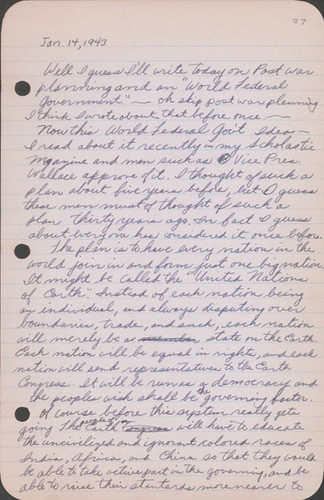 27
Jan. 14, 1943
Well I guess I'll write today on Post war
planning and an "World Federal
Government." — oh skip post war planning
I think I wrote about that before once —
Now this World Federal Gov't Idea —
I read about it recently in my Scholastic
Magazine and men such as Vice Pres.
Wallace approve of it. I thought of such a
plan about five years before, but I guess
these men must of thought of such a
plan thirty years ago. In fact I guess
about everyone has considered it once before.
The plan is to have every nation in the
world join in and form just one big nation.
It might be called the "United Nations
of Earth". Instead of each nation being
an individual, and always disputing over
boundaries, trade, and such, each nation
will merely be a state on the Earth.
Each nation will be equal in rights, and each
nation will send representatives to the Earth
Congress. It will be run as a democracy and
the peoples wish shall be the governing factor.
Of course before this system really gets
going The Earth will have to educate
the uncivilized and ignorant colored races of
India, Africa, and China so that they would
be able to take active part in the governing, and be
able to raise their standards, more nearer to